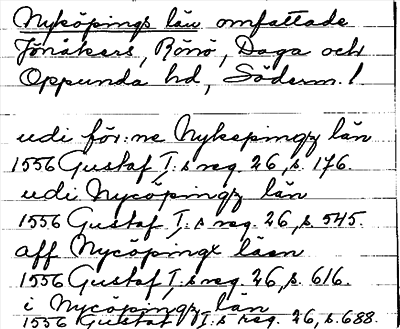 Nyköpings län omfattade
Jönåkers, Rönö, Daga och
Oppunda hd, Söderm. l
udi för:ne Nykepingz län
1556 Gustaf I:s reg. 26, s. 176.
udi Nycöpingz län
1556 Gustaf I:s reg. 26, s. 545.
aff Nycöpingx läan
1556 Gustaf I:s reg. 26, s. 616.
i Nycöpingz län
1556 Gustaf I:s reg. 26, s. 688.